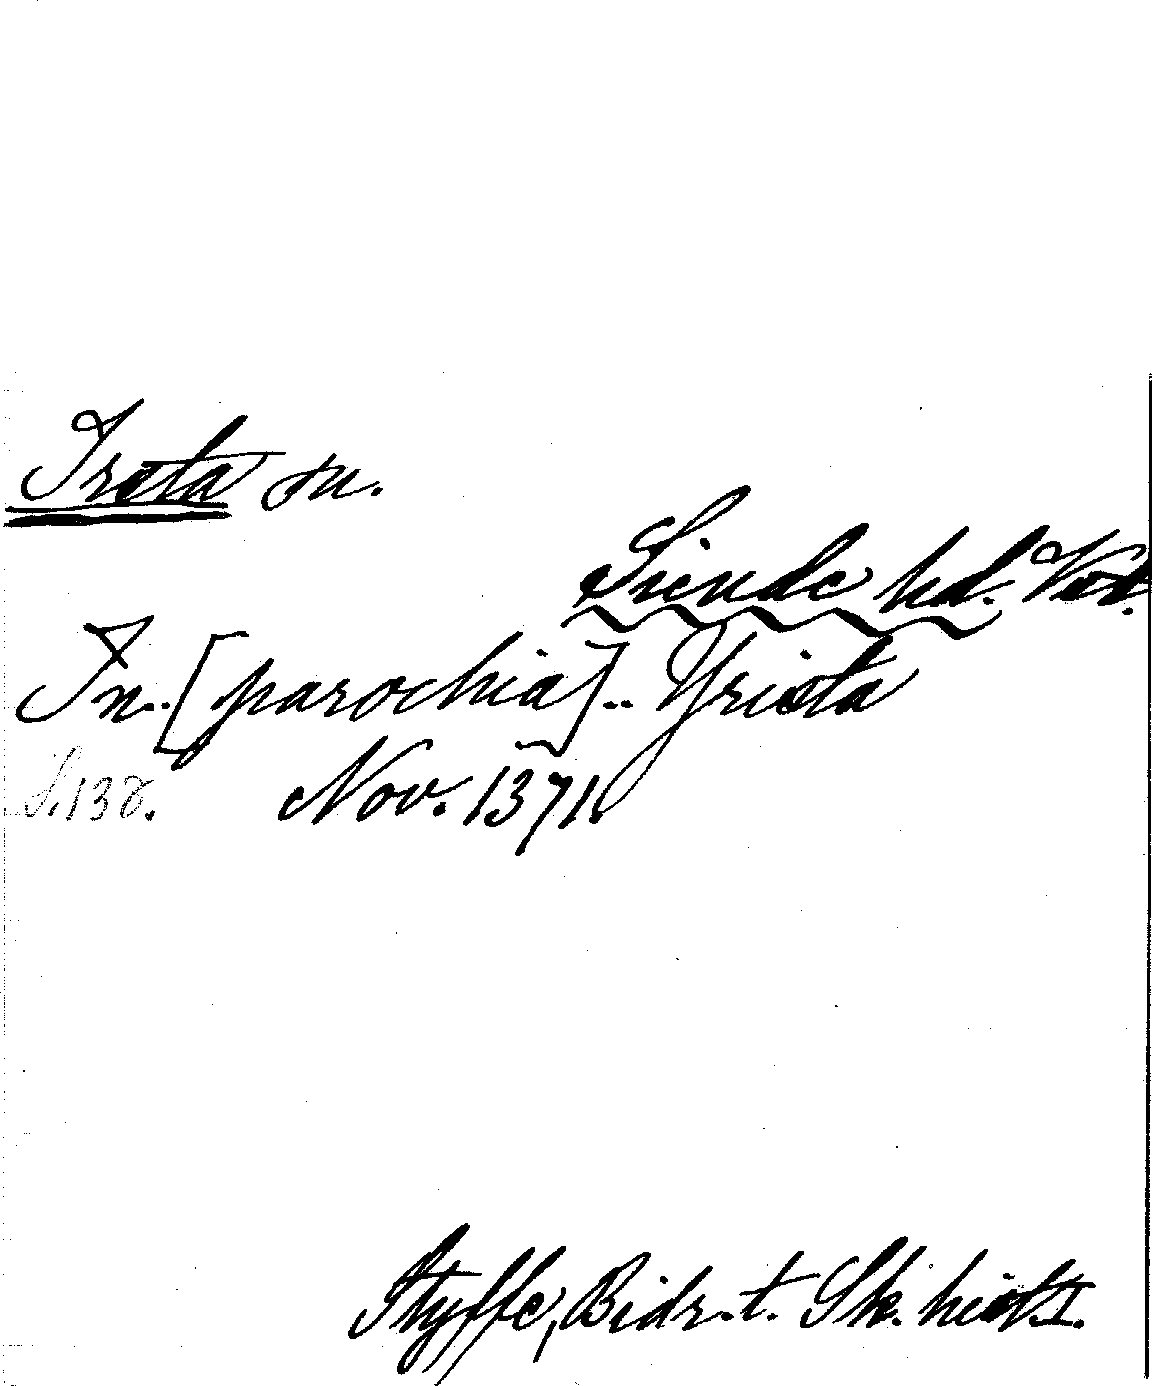 Irsta sn.
Siende hd. Vstm.
In..[parochia].. Yrista
S. 138. Nov. 1371.
Styffe, Bidr. t. Sk. hist. I.